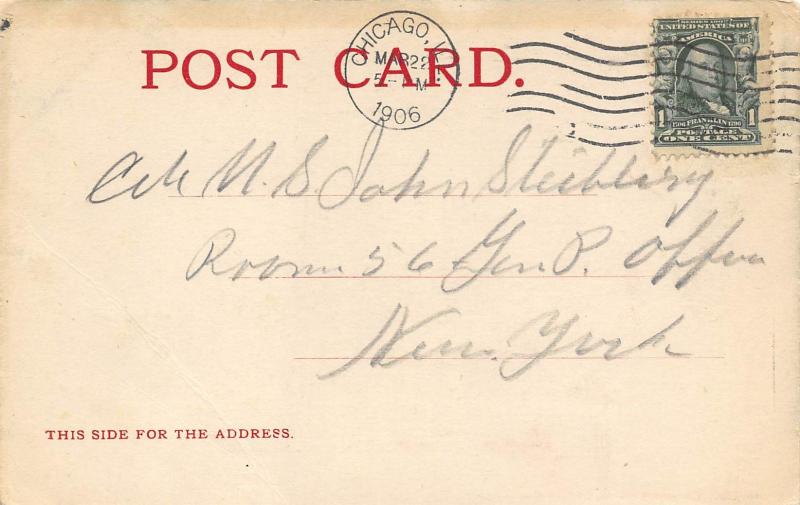 POST CARD.
CHICAGO, ILL.
MAR 22
5 - PM
1906
SERIES 1902
UNITED STATES OF AMERICA
1 1706 FRANKLIN 1790 1
POSTAGE
ONE CENT
N. S. John
Room 56 Gen P. Office
New York
THIS SIDE FOR THE ADDRESS.